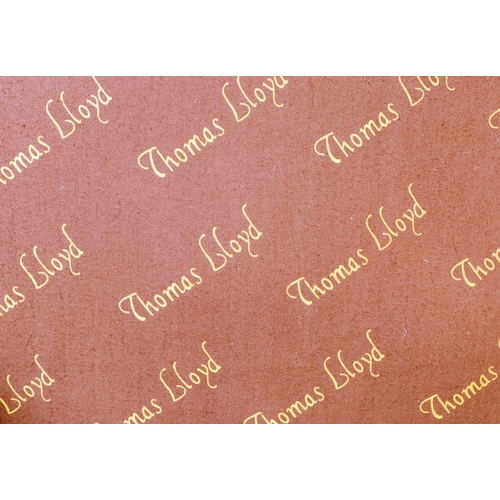 Thomas Lloyd
Thomas Lloyd
Thomas Lloyd
Thomas Lloyd
Thomas Lloyd
Thomas Lloyd
Thomas Lloyd
Thomas Lloyd
Thomas Lloyd
Thomas